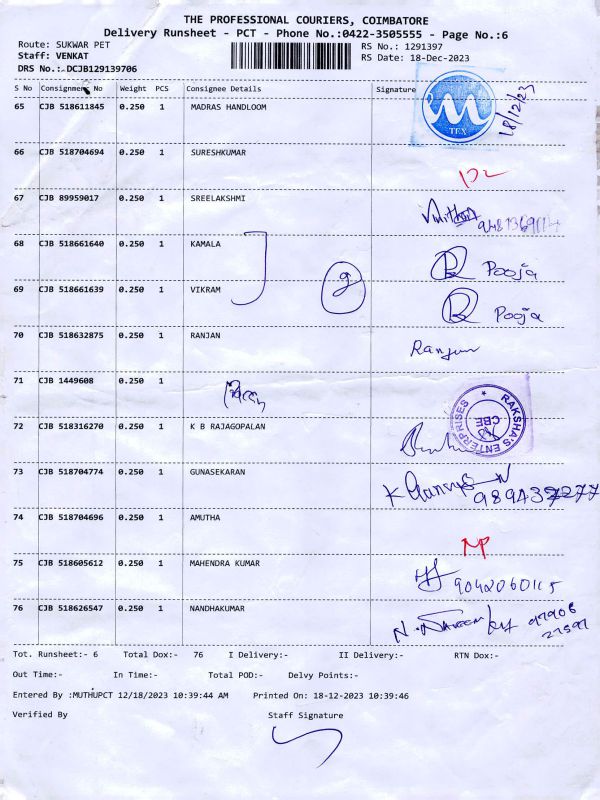 THE PROFESSIONAL COURIERS, COIMBATORE
Delivery Runsheet - PCT - Phone No.:0422-3505555 - Page No.:6
Route: SUKWAR PET
RS No.: 1291397
Staff: VENKAT
RS Date: 18-Dec-2023
DRS No.: DCJB129139706
S No Consignment No Weight PCS Consignee Details Signature
65 CJB 518611845 0.250 1 MADRAS HANDLOOM
M TEX
18/12/23
66 CJB 518704694 0.250 1 SURESHKUMAR
67 CJB 89959017 0.250 1 SREELAKSHMI
68 CJB 518661640 0.250 1 KAMALA Pooja
69 CJB 518661639 0.250 1 VIKRAM Pooja
70 CJB 518632875 0.250 1 RANJAN Ranjan
71 CJB 1449608 0.250 1
RAKSHA'S ENTERPRISES
CBE
72 CJB 518316270 0.250 1 K B RAJAGOPALAN
73 CJB 518704774 0.250 1 GUNASEKARAN
74 CJB 518704696 0.250 1 AMUTHA
75 CJB 518605612 0.250 1 MAHENDRA KUMAR
76 CJB 518626547 0.250 1 NANDHAKUMAR
Tot. Runsheet:- 6 Total Dox:- 76 I Delivery:- II Delivery:- RTN Dox:-
Out Time:- In Time:- Total POD:- Delvy Points:-
Entered By :MUTHUPCT 12/18/2023 10:39:44 AM Printed On: 18-12-2023 10:39:46
Verified By Staff Signature